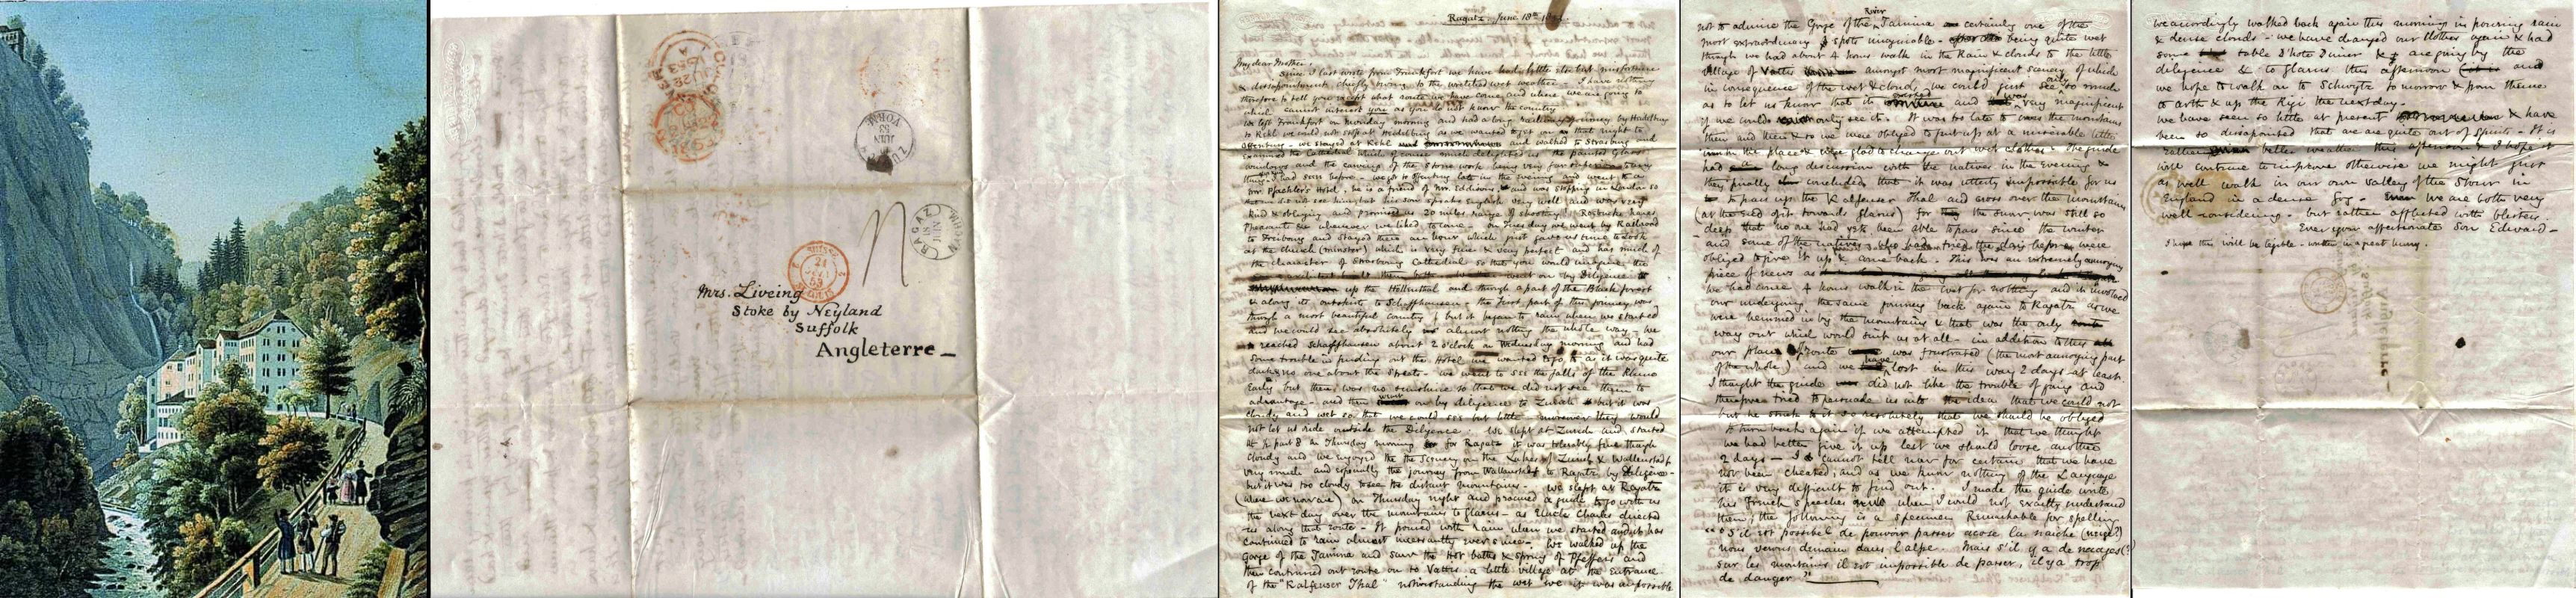 Mrs. Liveing
Stoke by Neyland
Suffolk
Angleterre
RAGAZ
JUNI
ZURICH
JUN
53
VORM
SUISSE
21
53
Ragatz. June 18th
My dear Mother,
Since I last wrote from Frankfort we have had little else but misfortune
& dissapointment chiefly owing to the wretched wet weather - I have nothing
therefore to tell you except what route we have come and where we are going to
which cannot interest you as you do not know the country
We left Frankfort on Monday morning and had a long railway journey by Heidelburg
to Kehl we could not stop at Heidelburg as we wanted to get on as that night to
Offenburg - we stayed at Kehl and walked to Strasburg and
examined the Cathedral which of course much delighted us the painted Glass
windows and the carvings of the stone work being very far superior to any
thing I had seen before - we got to Offenburg late in the evening and went to
Mr Pfaehler's Hotel. he is a friend of Mr. Eddison's and was stopping in London so
that we did not see him but his son speaks English very well and was very
kind & obliging and promised us 20 miles range of shooting! Roebucks hares
Pheasants &c whenever we liked to come - on Tuesday we went by Railroad
to Fribourg and stayed there an hour which just gave us time to look
at the church (minster) which is very fine & very perfect and has much of
the character of Strasbourg Cathedral so that you would imagine the
same architect built them both went on by Diligence to
up the Höllenthal and through a part of the Black forest
& along its outskirts to Schaffhausen - the first part of this journey was
through a most beautiful country but it began to rain when we started
and we could see absolutely almost nothing the whole way - we
reached Schaffhausen about 2 o'clock on Wednesday morning and had
some trouble in finding out the Hotel we wanted to go to as it was quite
dark & no one about the streets - we went to see the falls of the Rhine
early but there was no sunshine so that we did not see them to
advantage - and then went on by diligence to Zurich but it was
cloudy and wet so that we could see but little - moreover they would
not let us ride outside the Diligence. We slept at Zurich and started
at ½ past 8 on Thursday morning for Ragatz it was tolerably fine though
cloudy and we enjoyed the the Scenery on the Lakes of Zurich & Wallenstadt
very much and especially the journey from Wallenstadt to Ragatz by diligence -
but it was too cloudy to see the distant mountains - we slept at Ragatz
(where we now are) on Thursday night and procured a guide to go with us
the next day over the mountains to Glarus - as Uncle Charles directed
us along that route - It poured with rain when we started and it has
continued to rain almost incessantly ever since - We walked up the
Gorge of the Tamina and saw the Hot baths & spring of Pfeffers and
then continued our route on to Vattis a little village at the entrance
of the "Kalfeuser Thal" notwithstanding the wet we it was impossible
not to admire the Gorge of the River Tamina certainly one of the
most extraordinary spots imaginable - being quite wet
through we had about 4 hours walk in the Rain & clouds to the little
village of Vattis amongst most magnificent scenery of which
in consequence of the wet & cloud, we could just see only so much
as to let us know that it existed and was very magnificent
if we could only see it. It was too late to cross the mountains
then and there & so we were obliged to put up at a miserable little
inn in the place & were glad to change our wet clothes - The guide
had a long discussion with the natives in the Evening &
they finally concluded that it was utterly impossible for us
to pass up the Kalfeuser Thal and cross over the mountains
(at the end of it towards Glarus) for the snow was still so
deep that no one had yet been able to pass since the winter
and some of the natives who had tried the day before were
obliged to give it up & come back. This was an extremely annoying
piece of news as
we had come 4 hours walk in the wet for nothing and it involved
our undergoing the same journey back again to Ragatz as we
were hemmed in by the mountains & that was the only
way out which would suit us at all - in addition to this
our place of route was frustrated (the most annoying part
of the whole) and we have lost in this way 2 days at least.
I thought the guide did not like the trouble of going and
therefore tried to persuade us into the idea that we could not
but he stuck to it so resolutely that we should be obliged
to turn back again if we attempted it that we thought
we had better give it up lest we should loose another
2 days - I cannot tell now for certain that we have
not been cheated; and as we know nothing of the Language
it is very difficult to find out. I made the guide write
his French speeches when I could not exactly understand
them, the following is a specimen Remarkable for spelling
"S'il est possibel de pouvoir passer acose la naiche (neige?)
nous venons demain dans l'alpe. Mais s'il y a de
sur les montains il est impossible de passer, il y a trop
de danger"
we accordingly walked back again this morning in pouring rain
& dense clouds - we have changed our clothes again & had
some table d'hote Dinner & are going by the
diligence to Glarus this afternoon and
we hope to walk on to Schwytz tomorrow & from thence
to Arth & up the Rigi the next day.
We have seen so little at present & have
been so dissapointed that we are quite out of Spirits - It is
rather better weather this afternoon & I hope it
will continue to improve otherwise we might just
as well walk in our own valley of the Stour in
England in a dense fog. We are both very
well considering - but rather afflicted with blisters.
Ever your affectionate Son Edward -
I hope this will be legible - written in a great hurry.